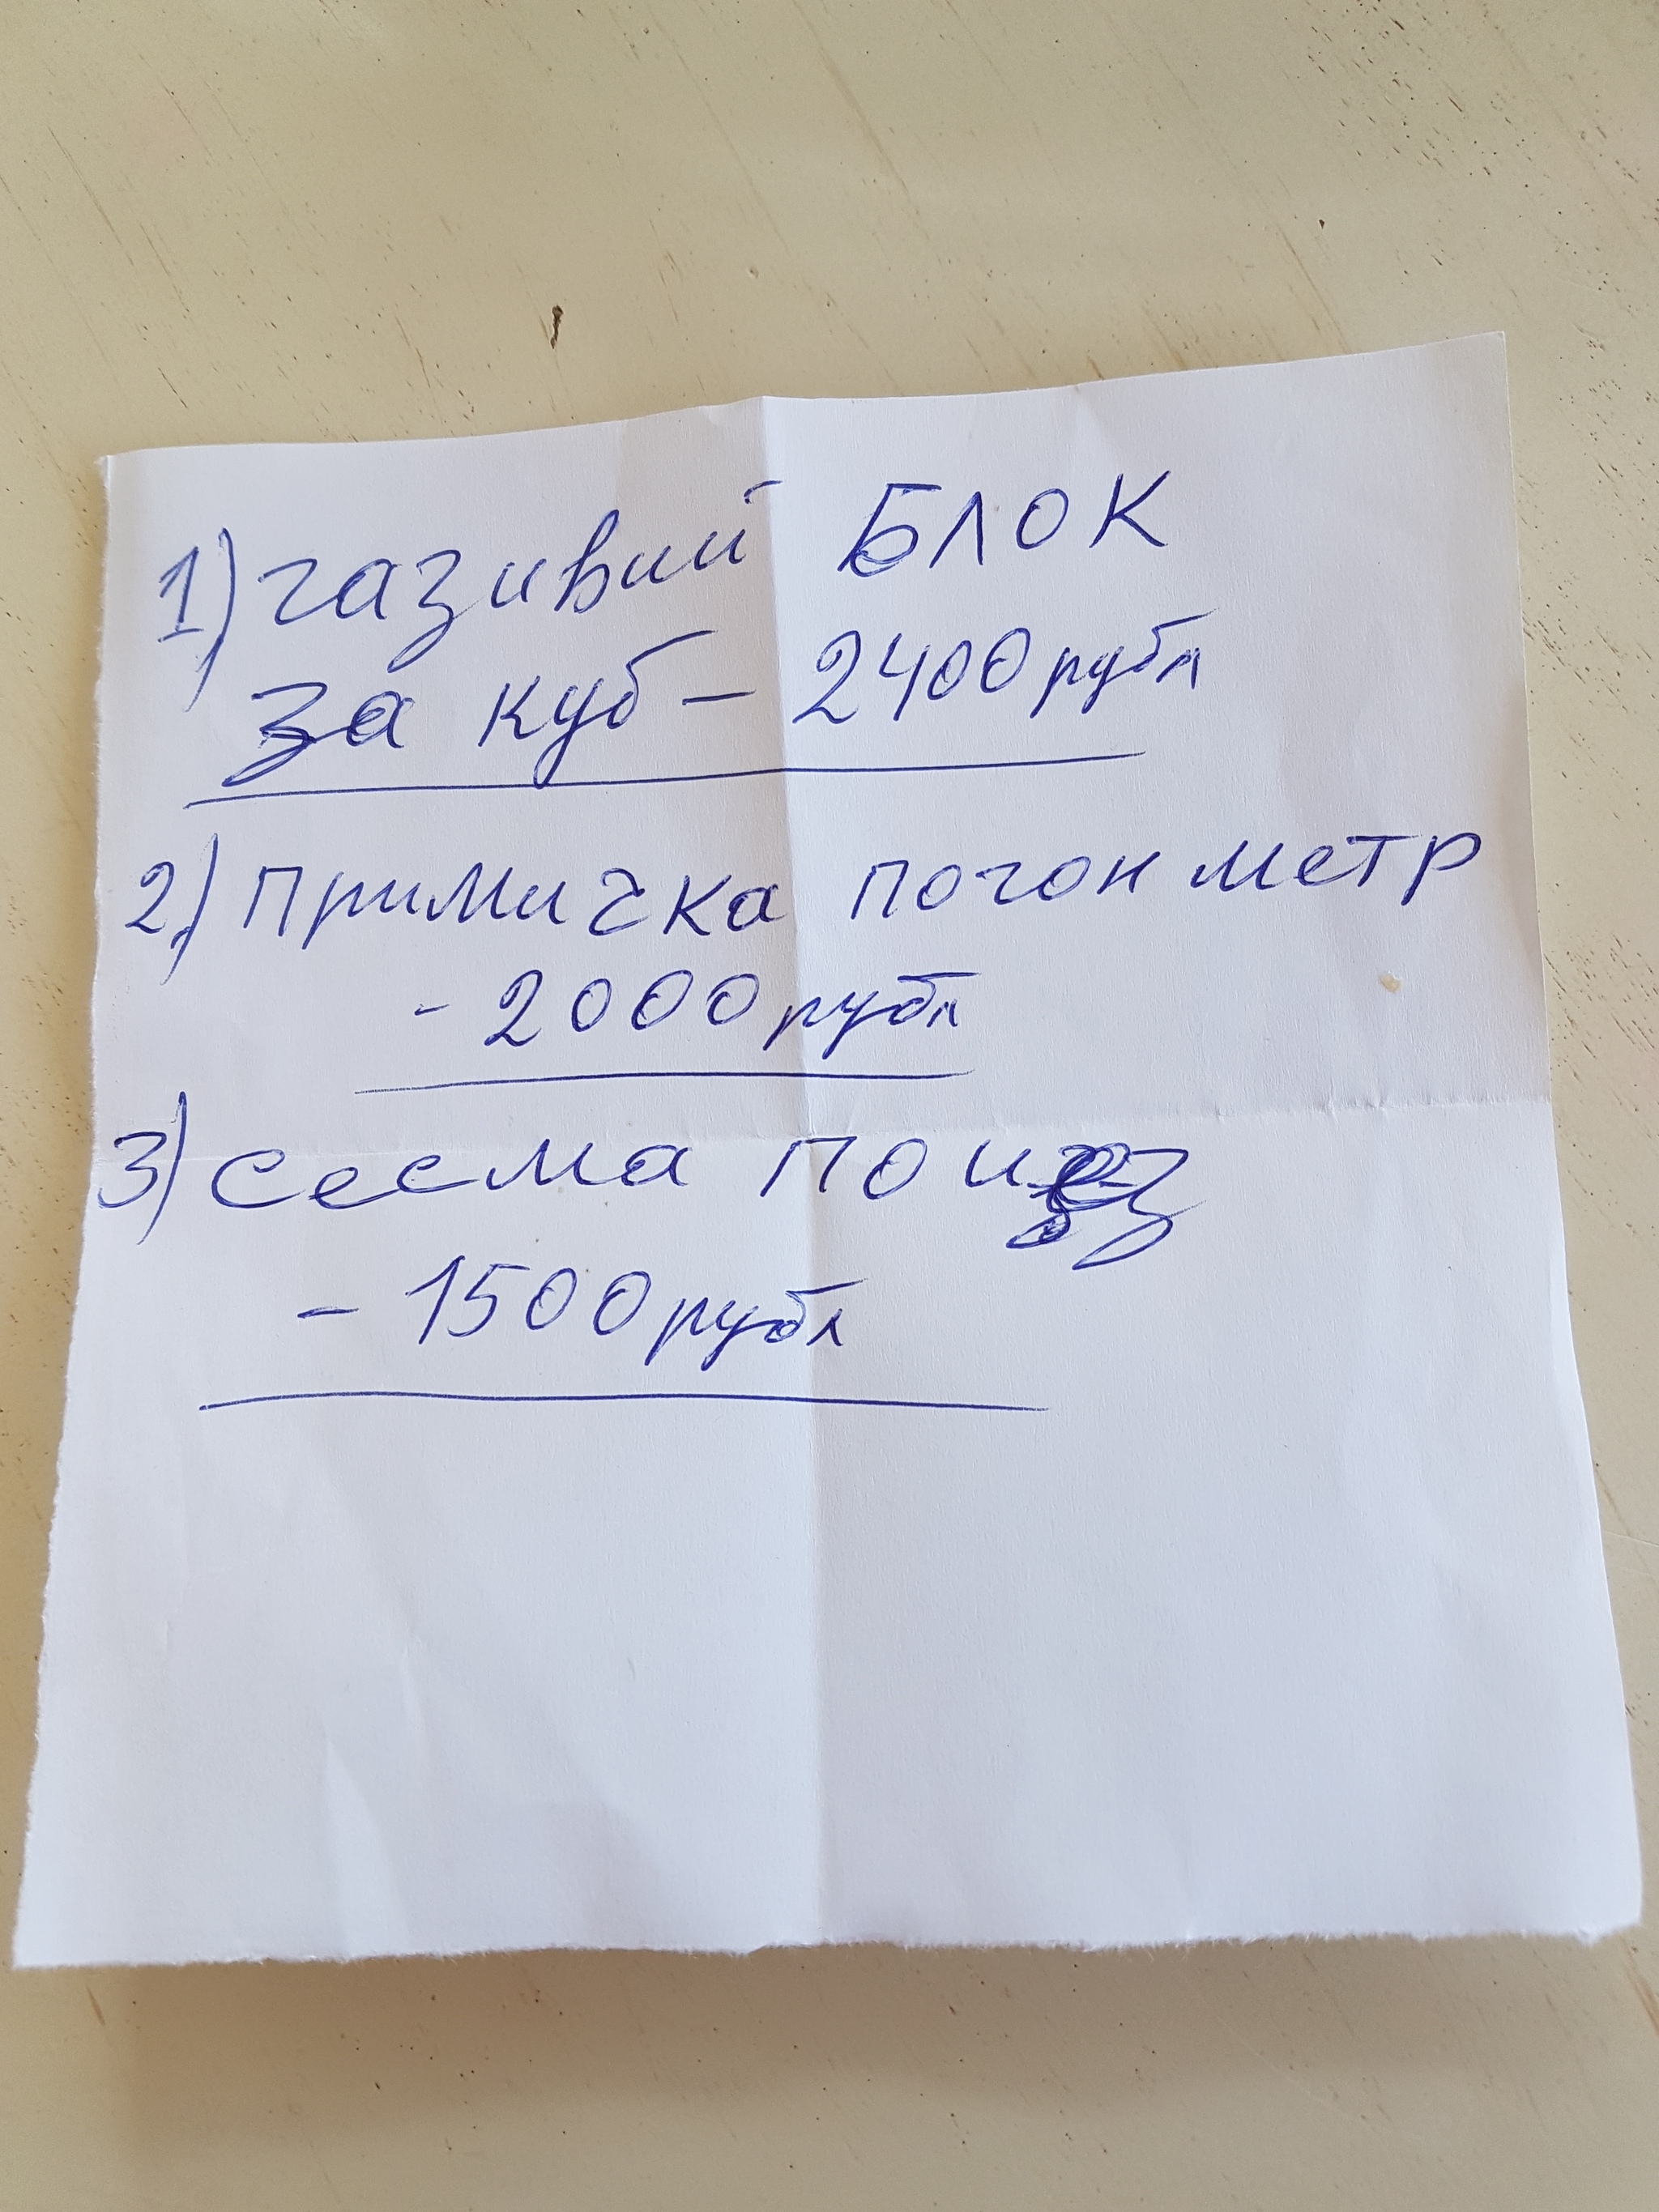 1) газивий БЛОК
за куб - 2400 рубл
2) примичка погон метр
- 2000 рубл
3) сесма по
- 1500 рубл